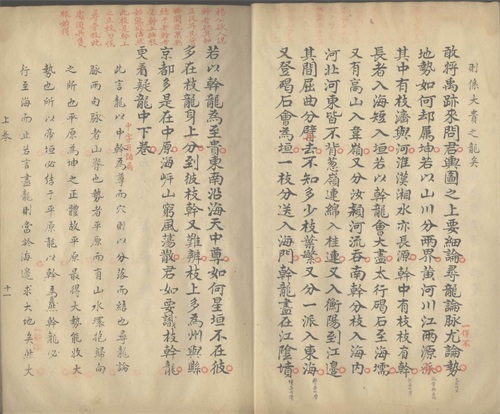 則係大貴之龍矣
敢將禹跡來問君輿圖之上要細論尋龍論脉尤論勢
地勢如何却屬坤若以山川分兩界黃河川江兩源派
其中有枝濟與河淮漢湘水亦長源幹中有枝枝有幹
長者入海短入垣若以幹龍會大盡太行碣石至海壖
又有高山入韋嶺又分汝潁河流吞南幹分枝入海內
河北河東皆不背葱嶺連綿入桂連又入衡陽到江邊
其間屈曲分臂去不知多少枝葉繁又分一派入東海
又登碣石會為垣一枝分送入海門幹龍盡在江陰墳
若以幹龍為至貴東南沿海天中尊如何星垣不在彼
多在枝龍身上分到彼枝幹又難辨枝上多為州與縣
京都多是在中原海㟁山窮風蕩散君如要識枝幹龍
更看疑龍中下卷
此言龍以中幹為尊而穴則以分落而結也尋龍論
脉而內脉者山脊也勢者平原而有山水環抱歸向
之所也平原為坤之正體故平原最得大勢能收大
勢也所以帝垣必結于平原龍以幹為長幹龍必
行至海而止古言盡龍則當於海邊求大地矣然大
上卷
十一